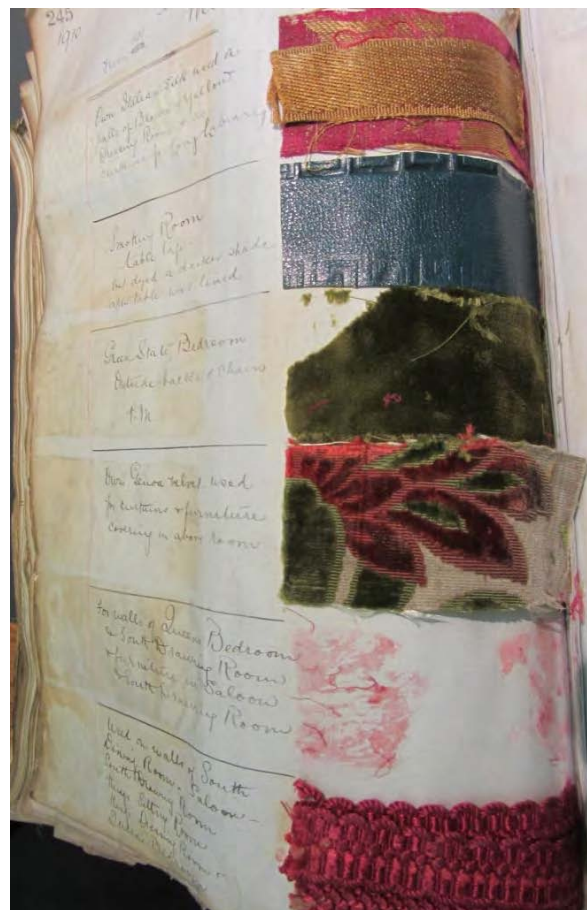 245
1910
from
Own Italian silk used on
walls of
Drawing Room
curtains
Smoking Room
table top.
but dyed a darker shade
after table was lined
Green State Bedroom
Outside backs of Chairs
Own Genoa velvet used
for curtains & furniture
covering in above Room
for walls of Queens Bedroom
& South Drawing Room
& furniture in Saloon
& South Drawing Room
Used on walls of South
Dining Room - Saloon -
South Drawing Room
Kings Sitting Room
Dining Room
Queens Bedroom